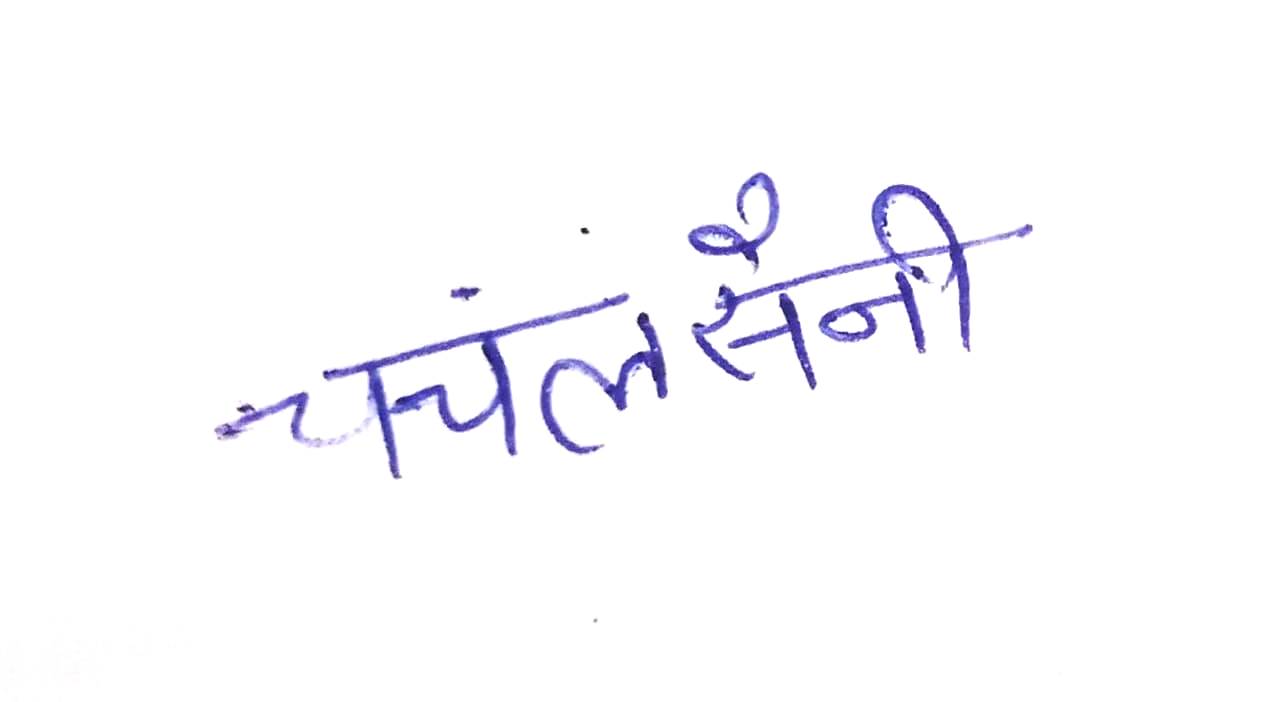 चचंल सैनी